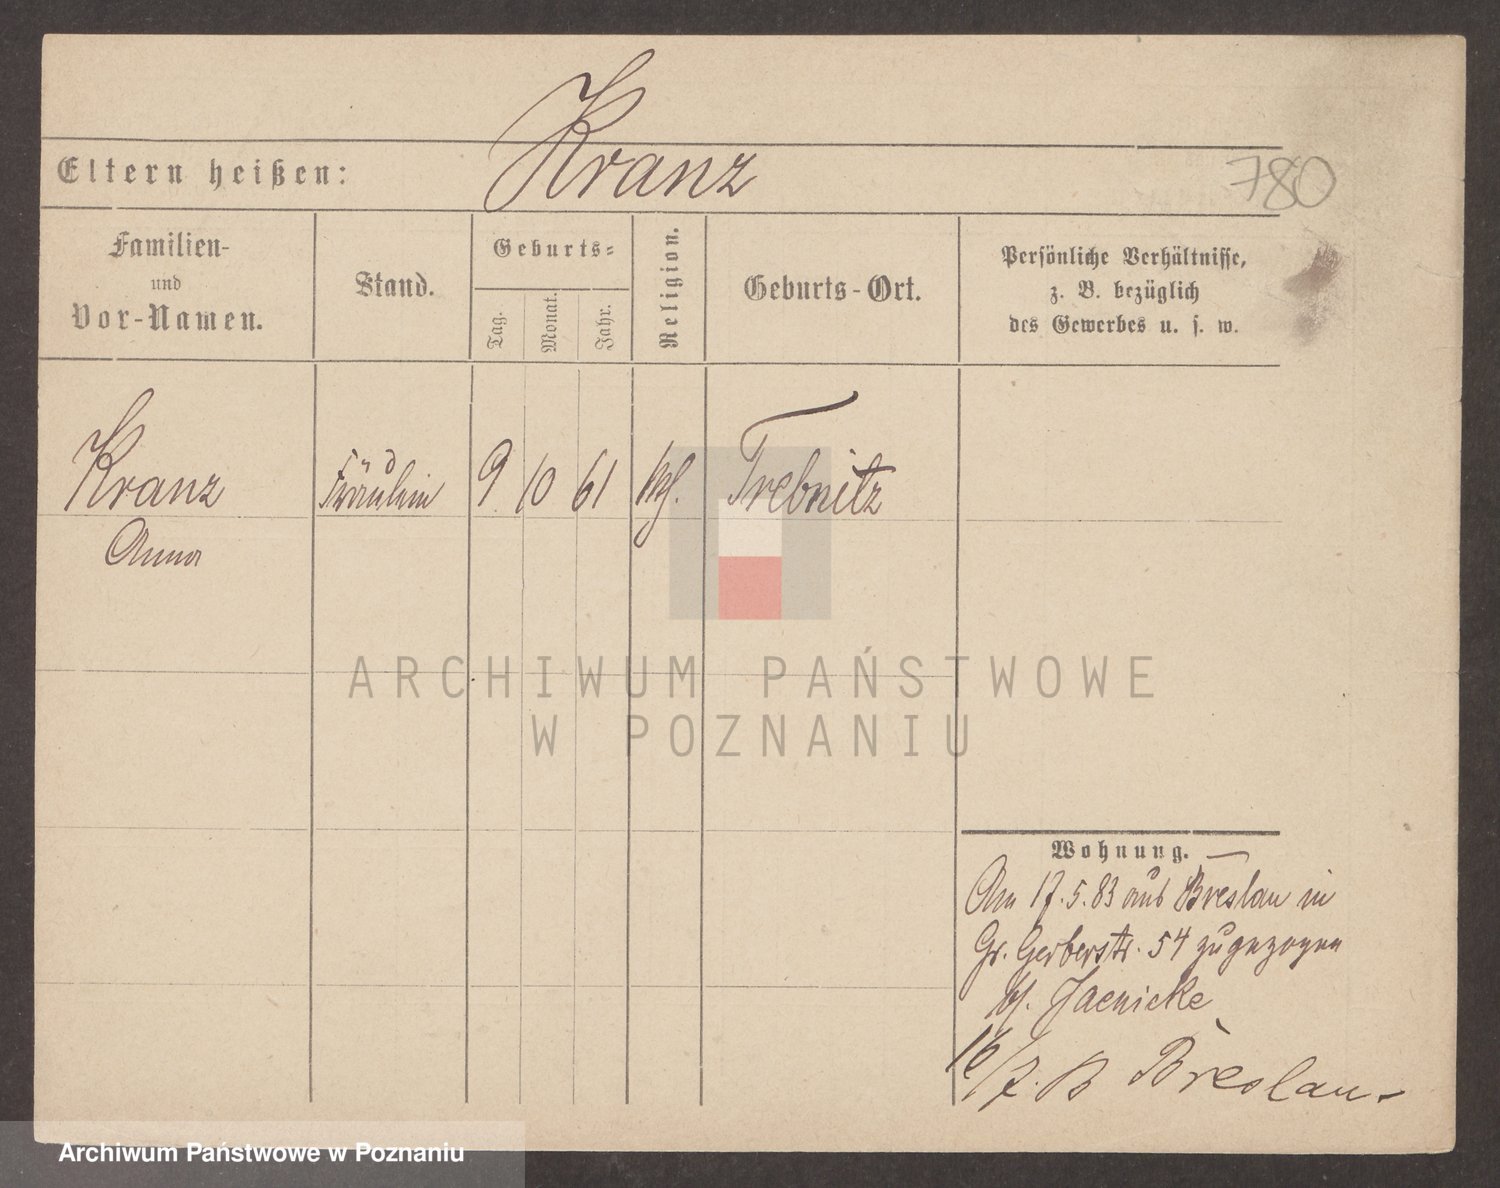 Kranz
Eltern heißen:
780
Familien-
und
Vor-Namen.
Stand.
Geburts-
Tag.
Monat.
Jahr.
Religion.
Geburts-Ort.
Persönliche Verhältnisse,
z. B. bezüglich
des Gewerbes u. s. w.
Kranz Fräulein 9 10 61 kth. Trebnitz
Anna
ARCHIWUM PAŃSTWOWE
W POZNANIU
Wohnung.
Am 17.5.83 aus Breslau in
Gr. Gerberstr. 54 zugezogen
Jaenicke
16/7. Breslau.
Archiwum Państwowe w Poznaniu